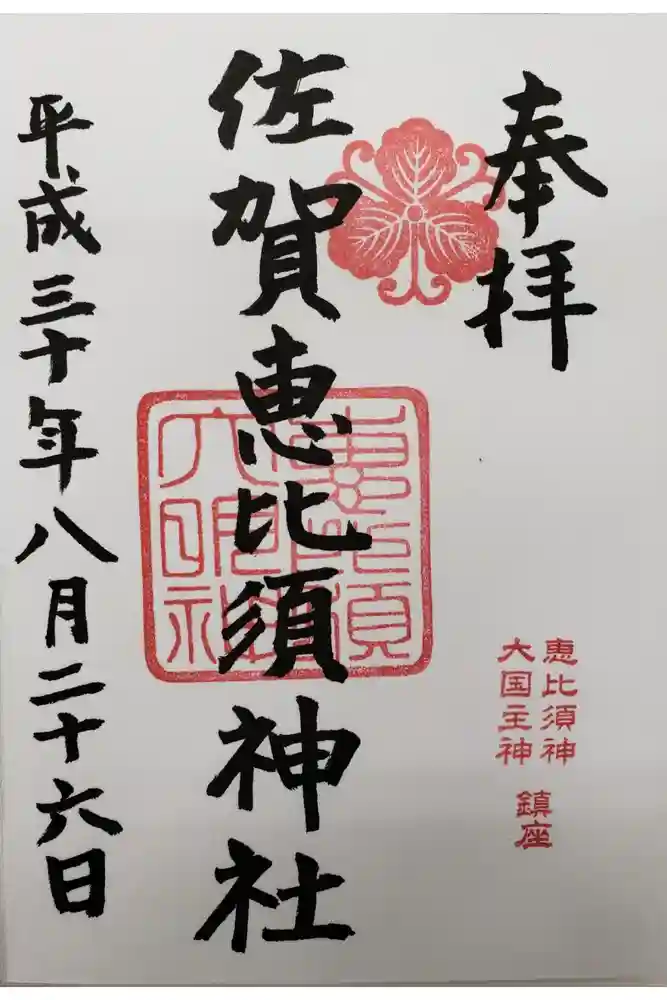 奉拝
恵比須神
大国主神
鎮座
佐賀恵比須神社
平成三十年八月二十六日